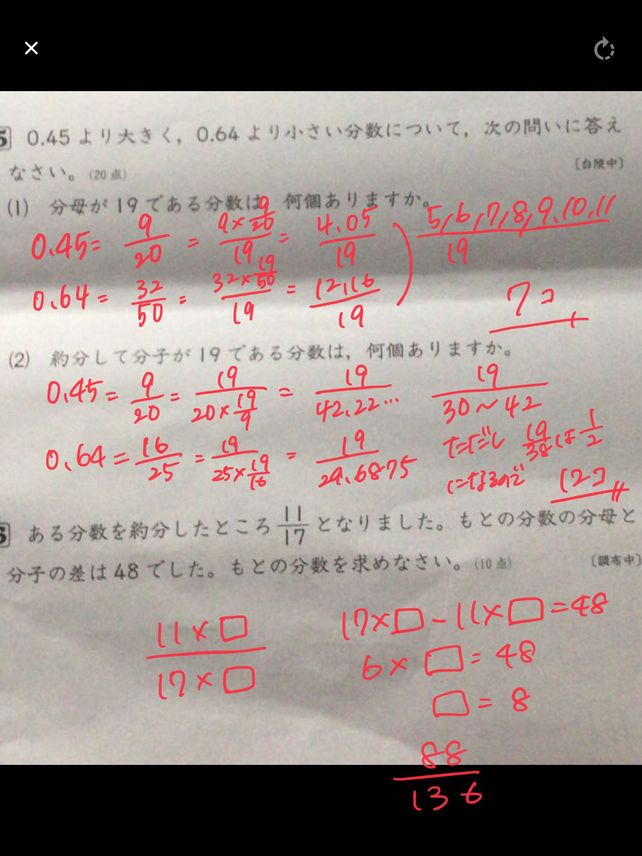 5 0.45より大きく，0.64より小さい分数について，次の問いに答え
なさい。(20点) 〔白陵中〕
(1) 分母が19である分数は，何個ありますか。
0.45= 9/20 = 9×19/20/19 = 4.05/19
0.64= 32/50 = 32×19/50/19 = 12.16/19
5,6,7,8,9,10,11/19
7コ
(2) 約分して分子が19である分数は，何個ありますか。
0.45= 9/20 = 19/20×19/9 = 19/42.22… 19/30～42
0.64= 16/25 = 19/25×19/16 = 19/29.6875
ただし 19/38は 1/2
になるので 12コ
6 ある分数を約分したところ 11/17 となりました。もとの分数の分母と
分子の差は48でした。もとの分数を求めなさい。(10点) 〔調布中〕
11×□/17×□
17×□-11×□=48
6×□=48
□=8
88/136